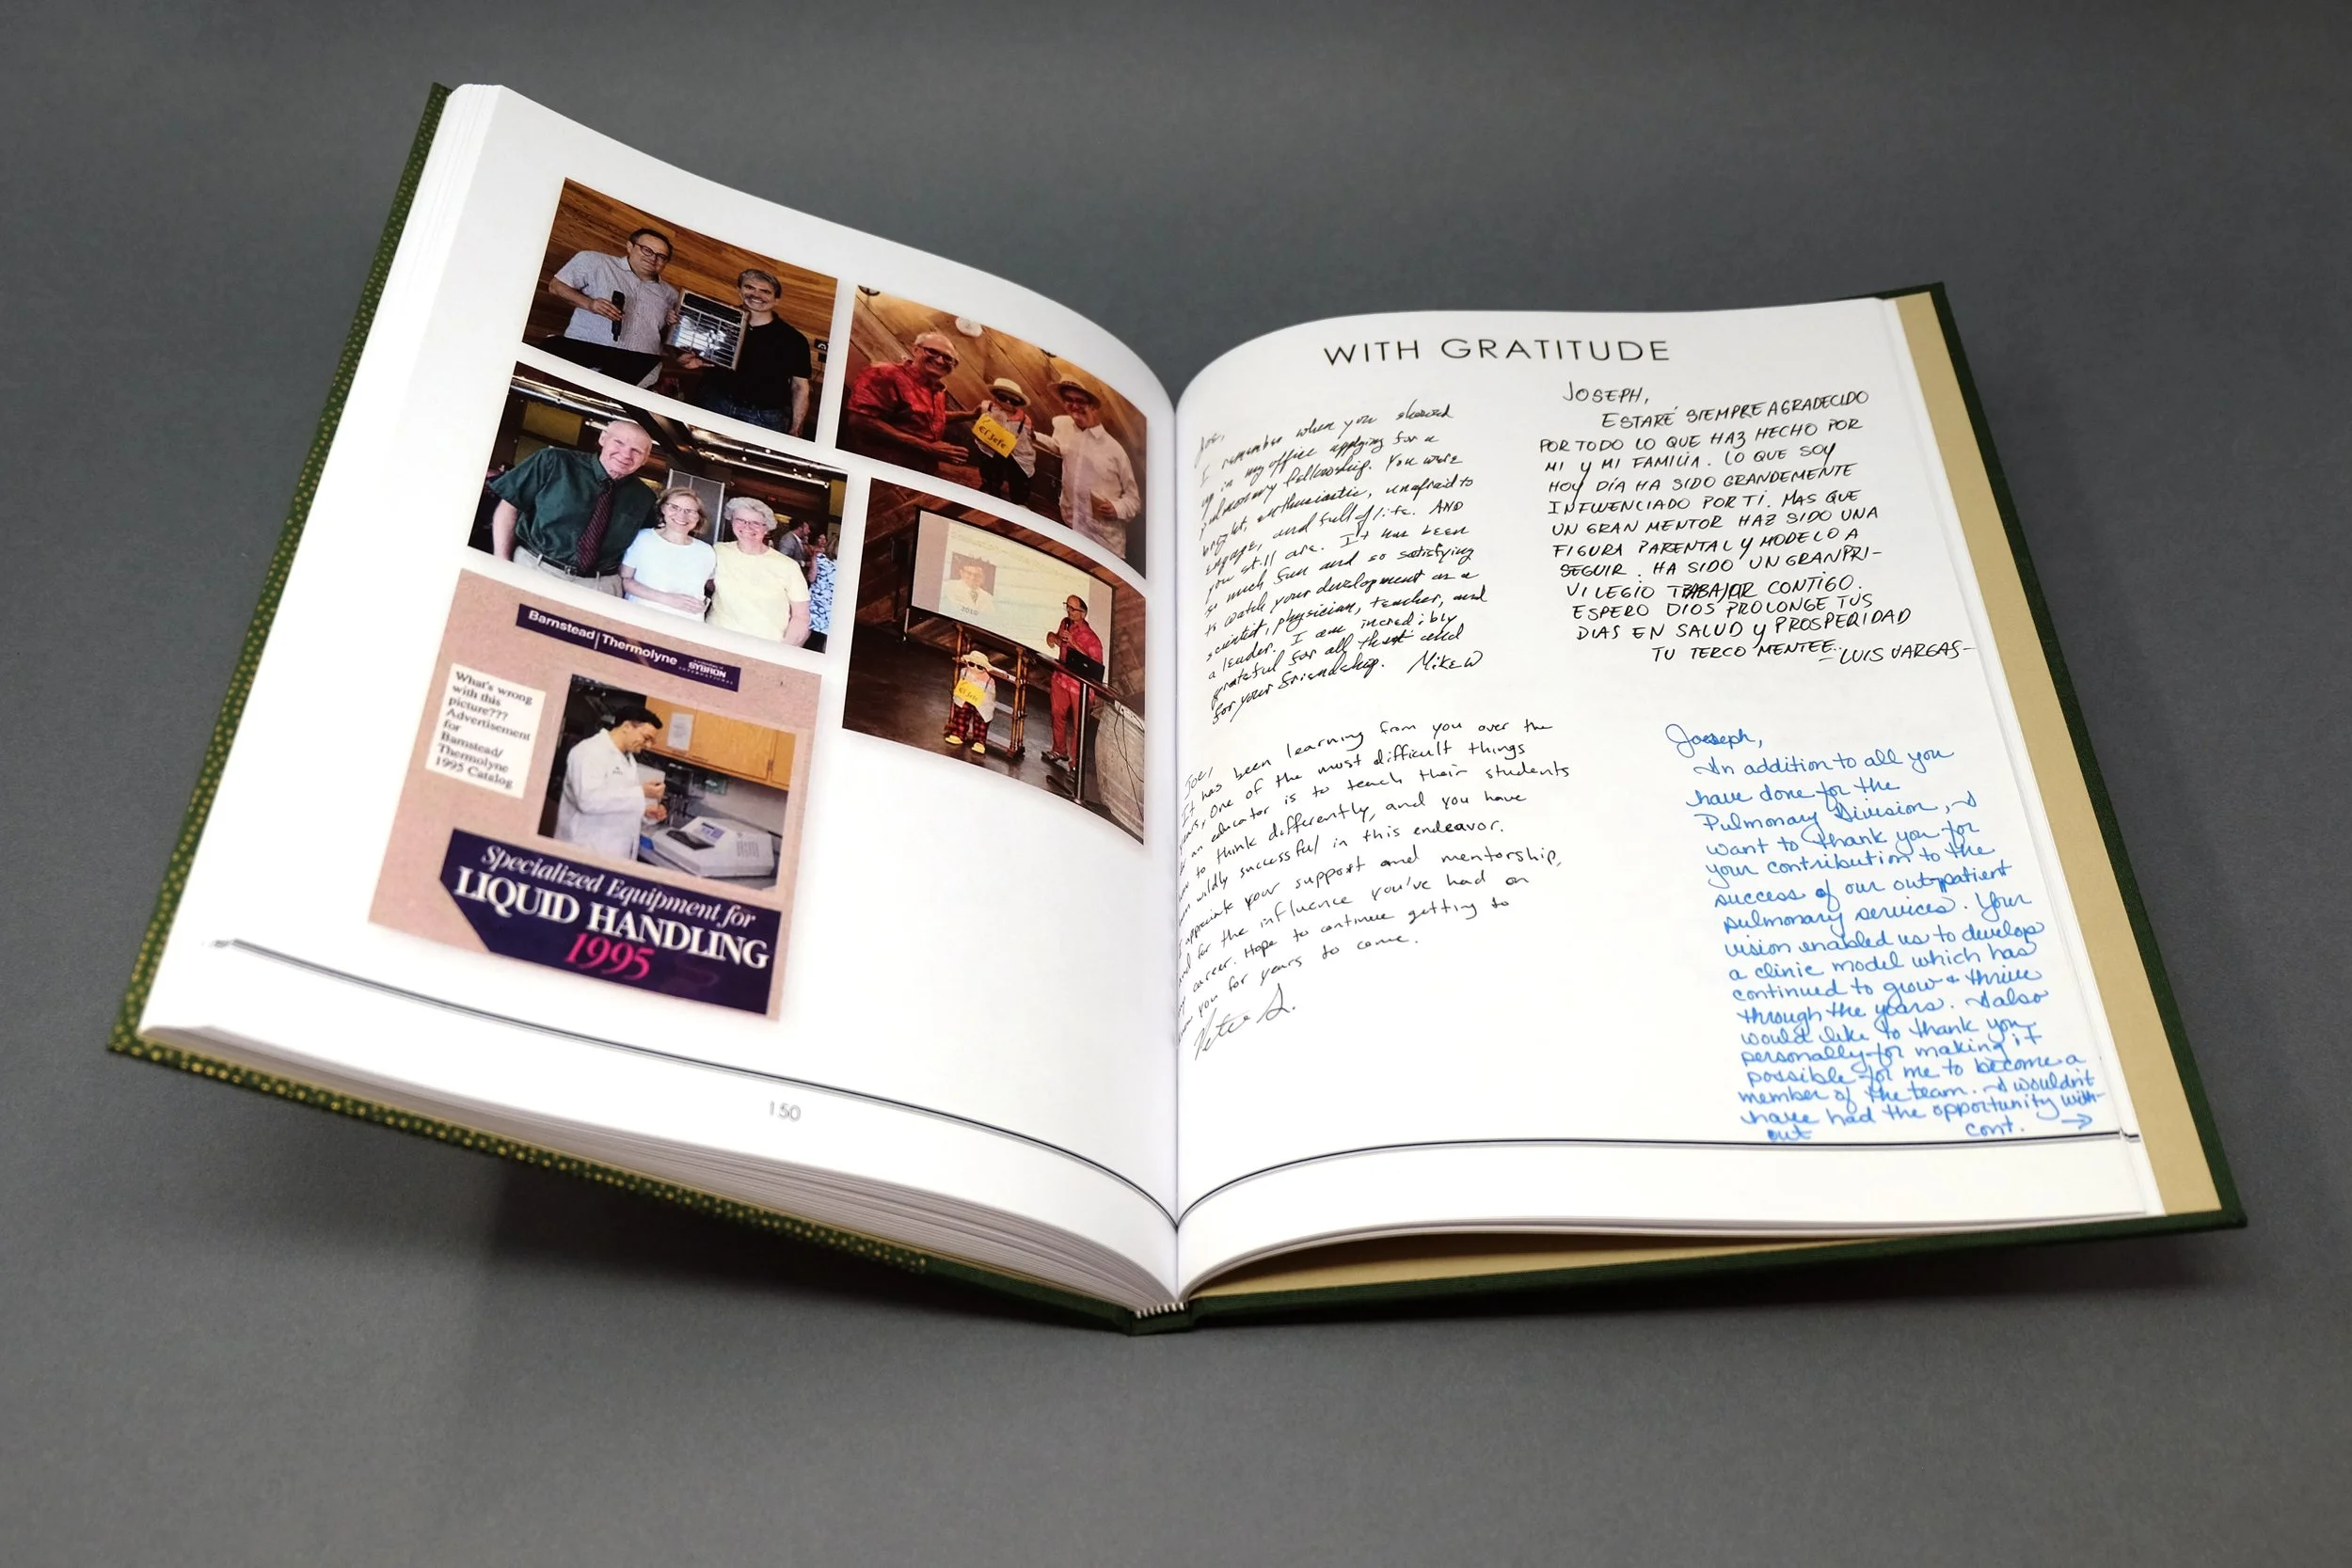 El Jefe
2010
El Jefe
Barnstead|Thermolyne
SYBRON
What's wrong
with this
picture???
Advertisement
for
Barnstead/
Thermolyne
1995 Catalog
Specialized Equipment for
LIQUID HANDLING
1995
150
WITH GRATITUDE
Joe,
I remember when you showed
up in my office applying for a
pulmonary fellowship. You were
bright, enthusiastic, unafraid to
engage, and full of life. AND
you still are. It has been
so much fun and so satisfying
to watch your development as a
scientist, physician, teacher, and
a leader. I am incredibly
grateful for all that and
for your friendship. Mike W
Joe,
It has been learning from you over the
years, One of the most difficult things
an educator is to teach their students
to think differently, and you have
been wildly successful in this endeavor.
I appreciate your support and mentorship,
and for the influence you've had on
my career. Hope to continue getting to
know you for years to come.
JOSEPH,
ESTARÉ SIEMPRE AGRADECIDO
POR TODO LO QUE HAZ HECHO POR
MI Y MI FAMILIA. LO QUE SOY
HOY DÍA HA SIDO GRANDEMENTE
INFLUENCIADO POR TI. MAS QUE
UN GRAN MENTOR HAZ SIDO UNA
FIGURA PARENTAL Y MODELO A
SEGUIR. HA SIDO UN GRAN PRI-
VILEGIO TRABAJAR CONTIGO.
ESPERO DIOS PROLONGE TUS
DIAS EN SALUD Y PROSPERIDAD
TU TERCO MENTEE. - LUIS VARGAS-
Joeseph,
In addition to all you
have done for the
Pulmonary Division, I
want to thank you for
your contribution to the
success of our outpatient
pulmonary services. Your
vision enabled us to develop
a clinic model which has
continued to grow + thrive
through the years. I also
would like to thank you
personally for making it
possible for me to become a
member of the team. I wouldn't
have had the opportunity with-
out cont. →